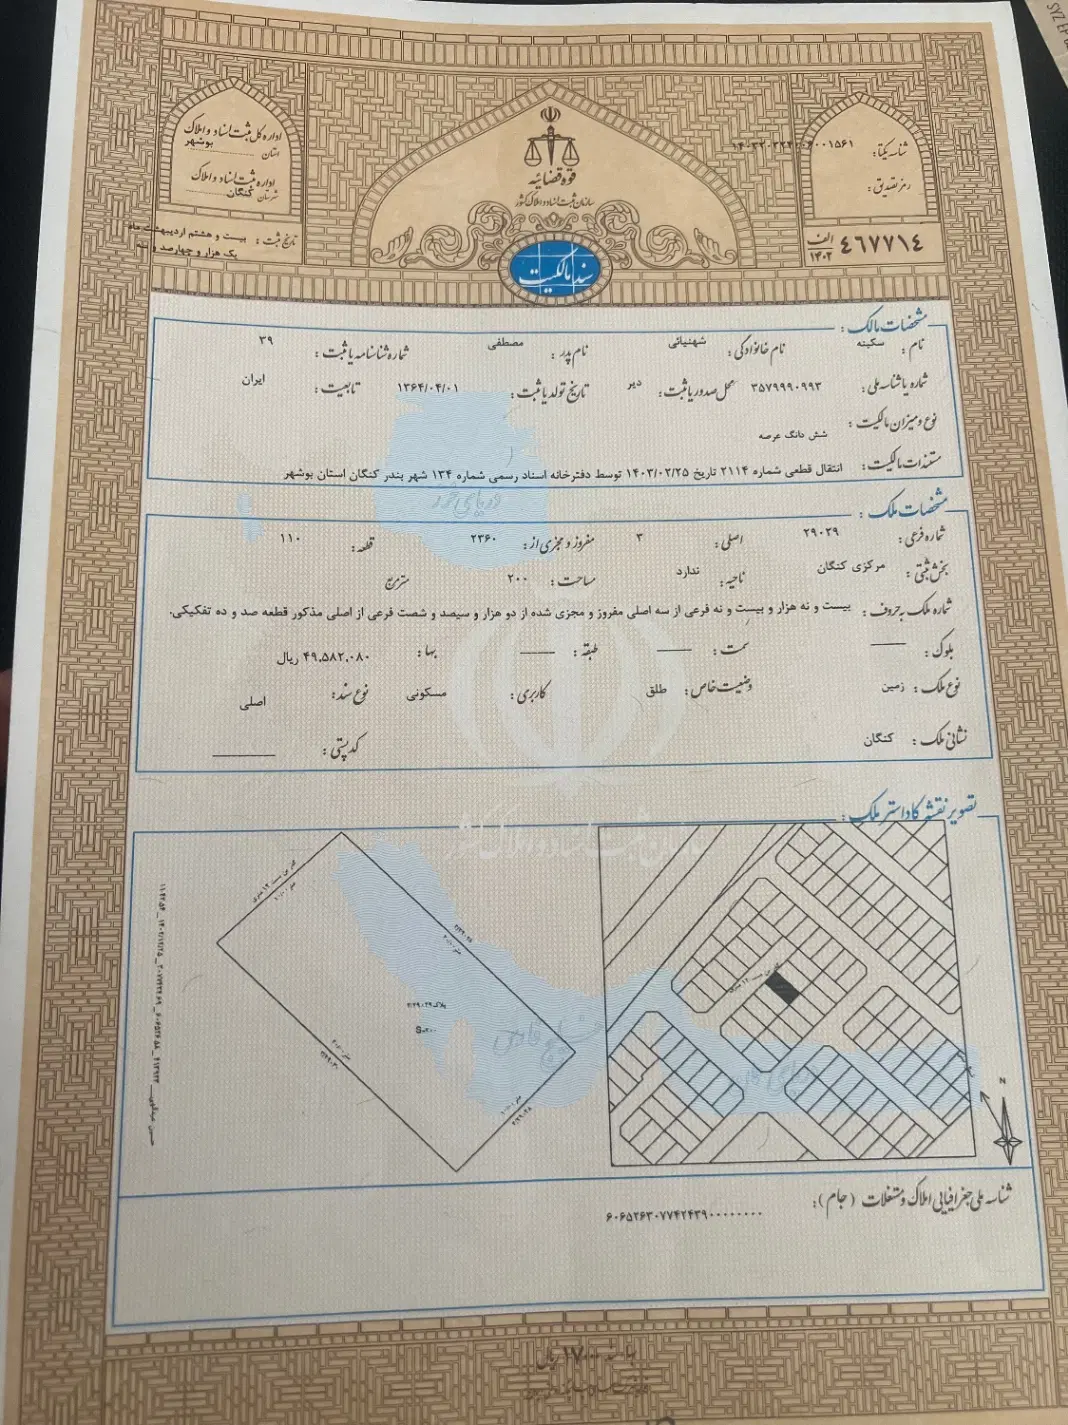 اداره کل ثبت اسناد و املاک
استان بوشهر
اداره ثبت اسناد و املاک
شهرستان کنگان
تاریخ ثبت : بیست و هشتم اردیبهشت ماه
یک هزار و چهارصد و سه
قوه قضائیه
سازمان ثبت اسناد و املاک کشور
سند مالکیت
شناسه یکتا:
رمز تصدیق:
۴۶۷۷۱۴ الف ۱۴۰۲
مشخصات مالک :
نام : سکینه نام خانوادگی : شهنیائی نام پدر : مصطفی شماره شناسنامه یا ثبت : ۳۹
شماره یا شناسه ملی : ۳۵۷۹۹۹۰۹۹۳ محل صدور یا ثبت : دیر تاریخ تولد یا ثبت : ۱۳۶۴/۰۴/۰۱ تابعیت : ایران
نوع و میزان مالکیت : شش دانگ عرصه
مستندات مالکیت : انتقال قطعی شماره ۲۱۱۴ تاریخ ۱۴۰۳/۰۲/۲۵ توسط دفترخانه اسناد رسمی شماره ۱۳۴ شهر بندر کنگان استان بوشهر
دریای خزر
مشخصات ملک :
شماره فرعی : ۲۹۰۲۹ اصلی : ۳ مفروز و مجزی از : ۲۳۶۰ قطعه : ۱۱۰
بخش ثبتی : مرکزی کنگان ناحیه : ندارد مساحت : ۲۰۰ مترمربع
شماره ملک به حروف : بیست و نه هزار و بیست و نه فرعی از سه اصلی مفروز و مجزی شده از دو هزار و سیصد و شصت فرعی از اصلی مذکور قطعه صد و ده تفکیکی.
بلوک : سمت : طبقه : بها : ۴۹,۵۸۲,۰۸۰ ریال
نوع ملک : زمین وضعیت خاص : طلق کاربری : مسکونی نوع سند : اصلی
نشانی ملک : کنگان کد پستی :
تصویر نقشه کاداستر ملک :
سازمان ثبت اسناد و املاک کشور
خلیج فارس
S=۲۰۰
N
شناسه ملی جغرافیایی املاک و مستغلات (جام) :
بها ۱۷۰۰۰ ریال